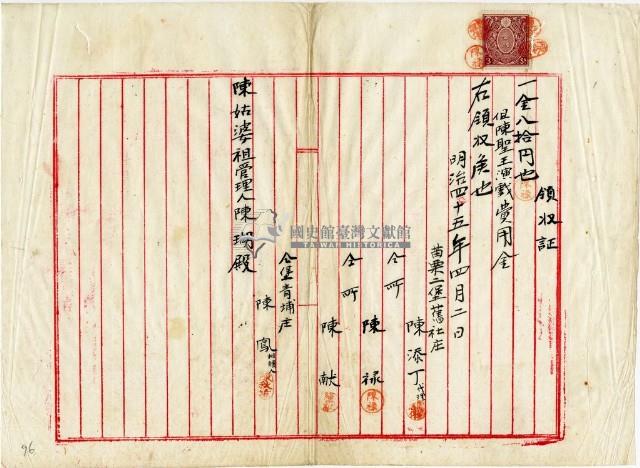 領收証
一金八拾円也
但陳聖王演戲費用金
右領収候也
明治四十五年四月二日
苗栗二堡舊社庄
陳添丁
仝所
陳祿
仝所
陳献
仝堡青埔庄
陳鳳
陳姑婆祖管理人陳瑞殿
國史館臺灣文獻館
TAIWAN HISTORICA
96